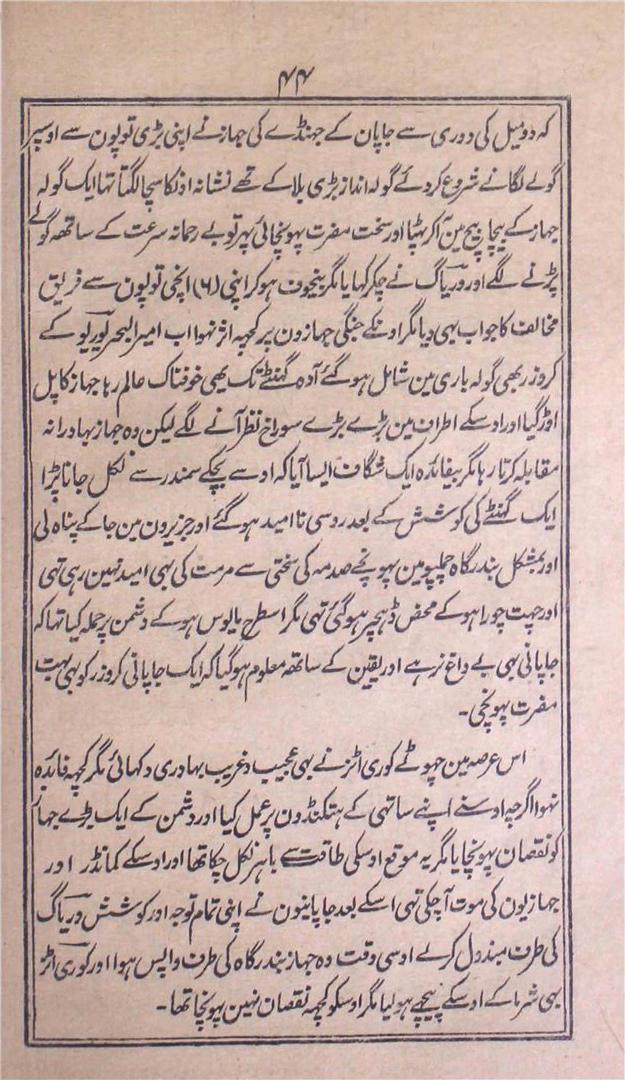 ۴۴
کہ دو میل کی دوری سے جاپان کے جھنڈے کی جہاز نے اپنی بڑی توپون سے اوسپر
گولے لگانے شروع کردئے گولہ انداز بڑی بلا کے تھے نشانہ اونکا سچا لگتا تھا ایک گولہ
جہاز کے بیچا بیچ مین آکر پھٹا اور سخت مضرت پہونچائی پہر تو بے رحمانہ سرعت کے ساتھہ گولے
پڑنے لگے اور وریاگ نے چکر کہایا مگر بیخوف ہوکر اپنی (۶) انچی توپون سے فریق
مخالف کا جواب بہی دیا مگر اونکے جنگی جہازون پر کچہہ اثر نہوا اب امیر البحر یوریو کے
کروزر بھی گولہ باری مین شامل ہوگئے آدہ گھنٹے تک یہی خوفناک عالم رہا جہاز کا پل
اوڑ گیا اور اوسکے اطراف مین بڑے بڑے سوراخ نظر آنے لگے لیکن وہ جہاز بہادرانہ
مقابلہ کرتا رہا مگر بیفائدہ ایک شگاف ایسا آیا کہ اوسے بچکے سمندر سے نکل جانا پڑا
ایک گھنٹے کی کوشش کے بعد روسی ناامید ہوگئے اور جزیرون مین جاکے پناہ لی
اور بمشکل بندرگاہ چملپو مین پہونچے صدمہ کی سختی سے مرمت کی بہی امید نہین رہی تہی
اور چہت چورا ہوکے محض ڈہچر ہوگئی تہی مگر اسطرح مایوس ہوکے دشمن پر حملہ کیا تہا کہ
جاپانی بہی بے داغ نرہے اور یقین کے ساتھہ معلوم ہوگیا کہ ایک جاپانی کروزر کو بہی بہت
مضرت پہونچی۔
اس عرصہ مین چہوٹے کوری اٹز نے بہی عجیب و غریب بہادری دکہائی مگر کچہہ فائدہ
نہوا اگرچہ اوسنے اپنے ساتہی کے ہتکنڈون پر عمل کیا اور دشمن کے ایک بڑے جہاز
کو نقصان پہونچایا مگر یہ موقع اوسکی طاقت سے باہر نکل چکا تھا اور اوسکے کمانڈر اور
جہازیون کی موت آچکی تہی اسکے بعد جاپانیون نے اپنی تمام توجہ اور کوشش وریاگ
کی طرف مبذول کرلے اوسی وقت وہ جہاز بندرگاہ کی طرف واپس ہوا اور کوری اٹز
بہی شرما کے اوسکے پیچہے ہولیا مگر اوسکو کچہہ نقصان نہین پہونچا تھا۔